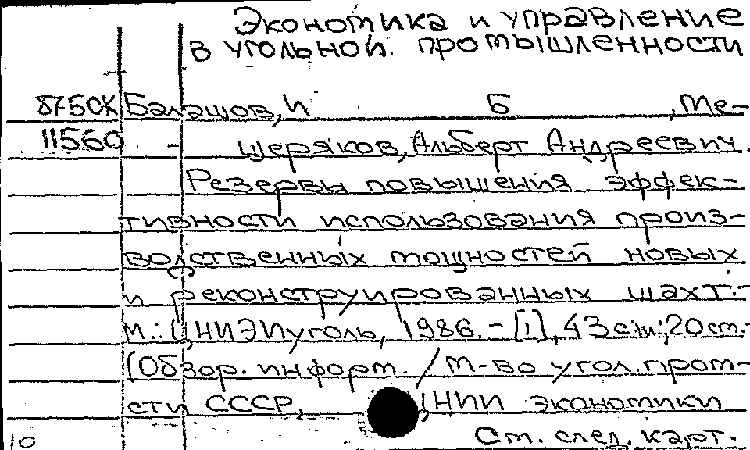 Экономика и управление
в угольной промышленности
875ОК Балашов, И Б , Ме-
11560 щеряков, Альберт Андреевич.
Резервы повышения эффек-
тивности использования произ-
водственных мощностей новых
и реконструированных шахт.-
М.: ЦНИЭИуголь, 1986.-[1], 43 с.: ил.; 20 см.-
(Обзор. информ. / М-во угол. пром-
сти СССР, ЦНИИ экономики
10 См. след. карт.